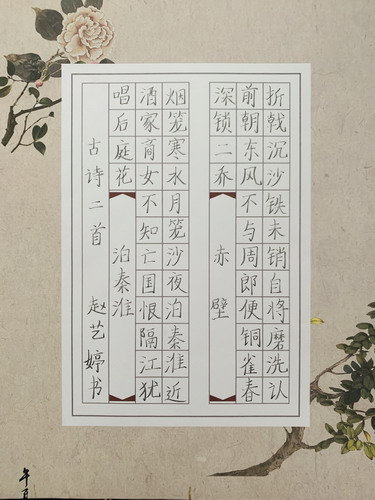 折戟沉沙铁未销自将磨洗认
前朝东风不与周郎便铜雀春
深锁二乔
赤壁
烟笼寒水月笼沙夜泊秦淮近
酒家商女不知亡国恨隔江犹
唱后庭花
泊秦淮
古诗二首 赵艺婷书